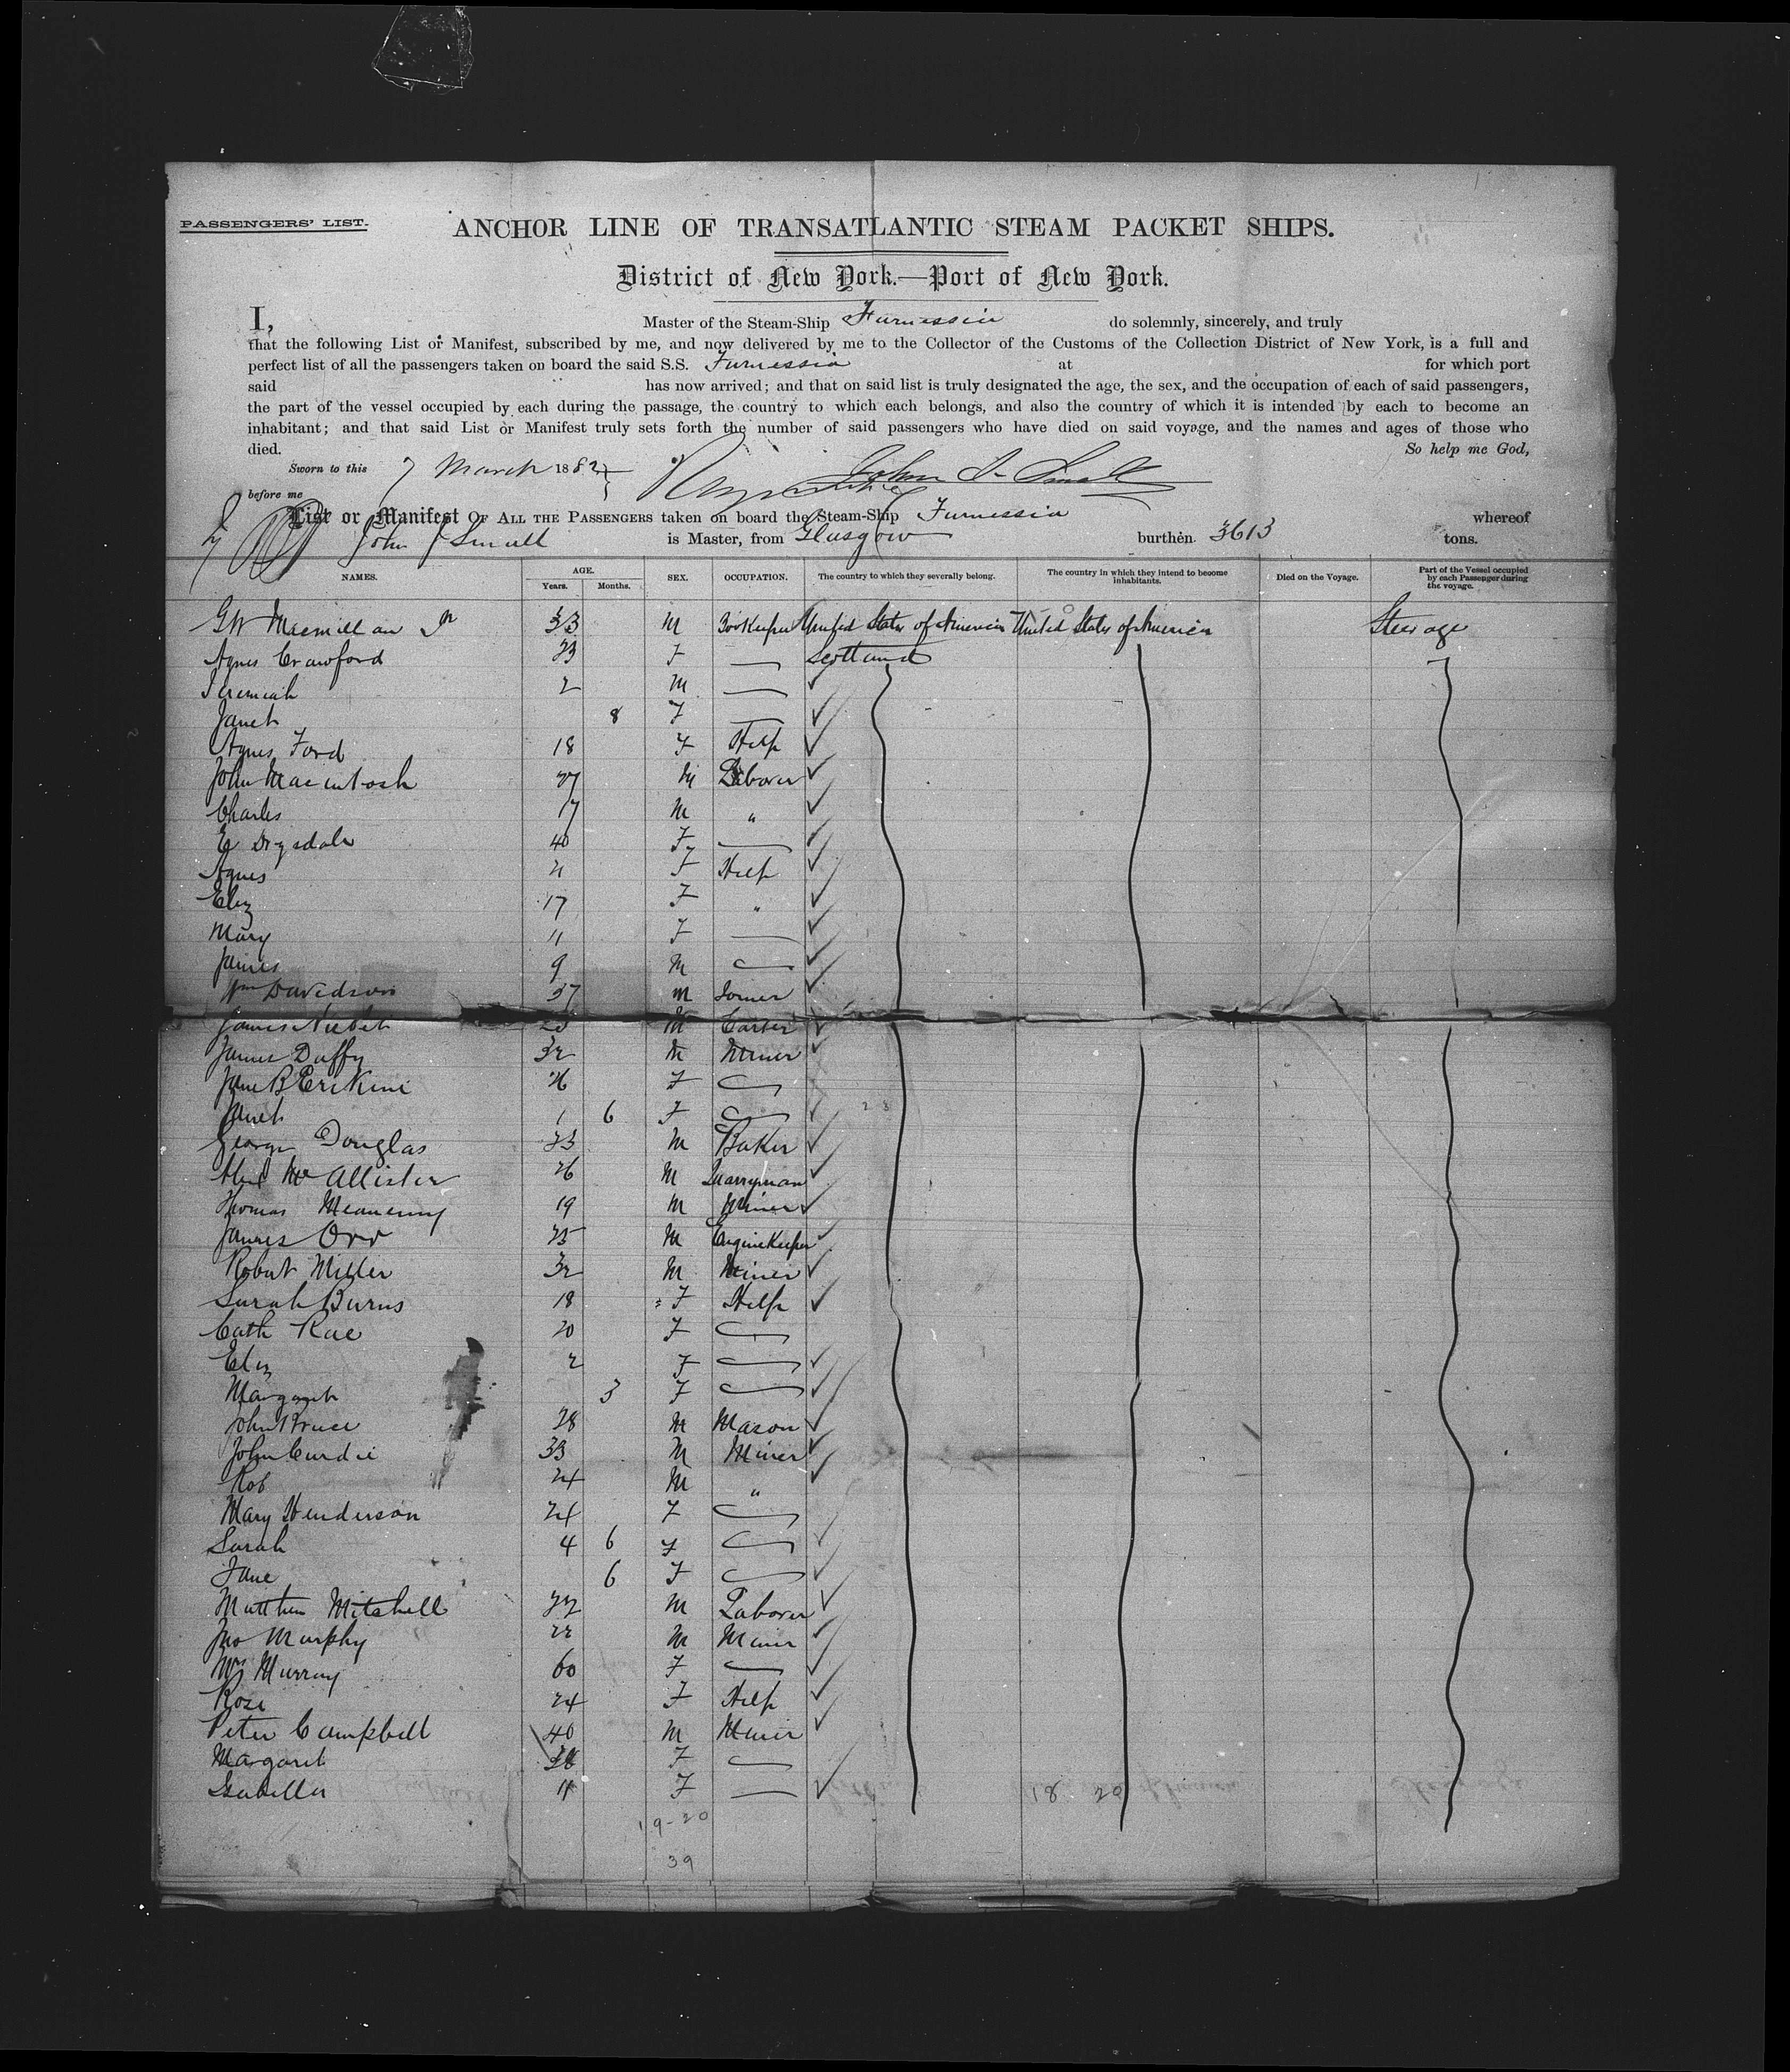 PASSENGERS' LIST.
ANCHOR LINE OF TRANSATLANTIC STEAM PACKET SHIPS.
District of New York.—Port of New York.
I, Master of the Steam-Ship Furnessia do solemnly, sincerely, and truly
that the following List or Manifest, subscribed by me, and now delivered by me to the Collector of the Customs of the Collection District of New York, is a full and
perfect list of all the passengers taken on board the said S.S. Furnessia at for which port
said has now arrived; and that on said list is truly designated the age, the sex, and the occupation of each of said passengers,
the part of the vessel occupied by each during the passage, the country to which each belongs, and also the country of which it is intended by each to become an
inhabitant; and that said List or Manifest truly sets forth the number of said passengers who have died on said voyage, and the names and ages of those who
died. So help me God,
Sworn to this 7 March 1882
before me
List or Manifest OF ALL THE PASSENGERS taken on board the Steam-Ship Furnessia whereof
John J Small is Master, from Glasgow burthen 3613 tons.
NAMES. AGE. Years. Months. SEX. OCCUPATION. The country to which they severally belong. The country in which they intend to become inhabitants. Died on the Voyage. Part of the Vessel occupied by each Passenger during the voyage.
GW Macmillan Jr 33 M Bookeeper United States of America United States of America Steerage
Agnes Crawford 23 F Scotland
Jeremiah 2 M
Janet 8 F
Agnes Ford 18 F Help
John Macintosh 27 M Laborer
Charles 17 M "
E Drysdale 40 F
Agnes 21 F Help
Eliz 17 F "
Mary 11 F
James 9 M
Wm Davidson 37 M Joiner
James M Carter
James Duffy 32 M Miner
Jane B Erskine 26 F
Janet 1 6 F
George Douglas 23 M Baker
Alex McAllister 26 M Quarryman
Thomas 19 M Miner
James Orr 25 M EngineKeeper
Robert Miller 32 M Miner
Sarah Burns 18 F Help
Cath Rae 20 F
Eliz 2 F
Margaret 3 F
John Bruce 28 M Mason
John Curdie 33 M Miner
Rob 24 M "
Mary Henderson 24 F
Sarah 4 6 F
Jane 6 F
Matthew Mitchell 22 M Laborer
Jno Murphy 22 M Miner
Mrs Murray 60 F
Rose 24 F Help
Peter Campbell 40 M Miner
Margaret F
Isabella 11 F 18 20
19-20
39